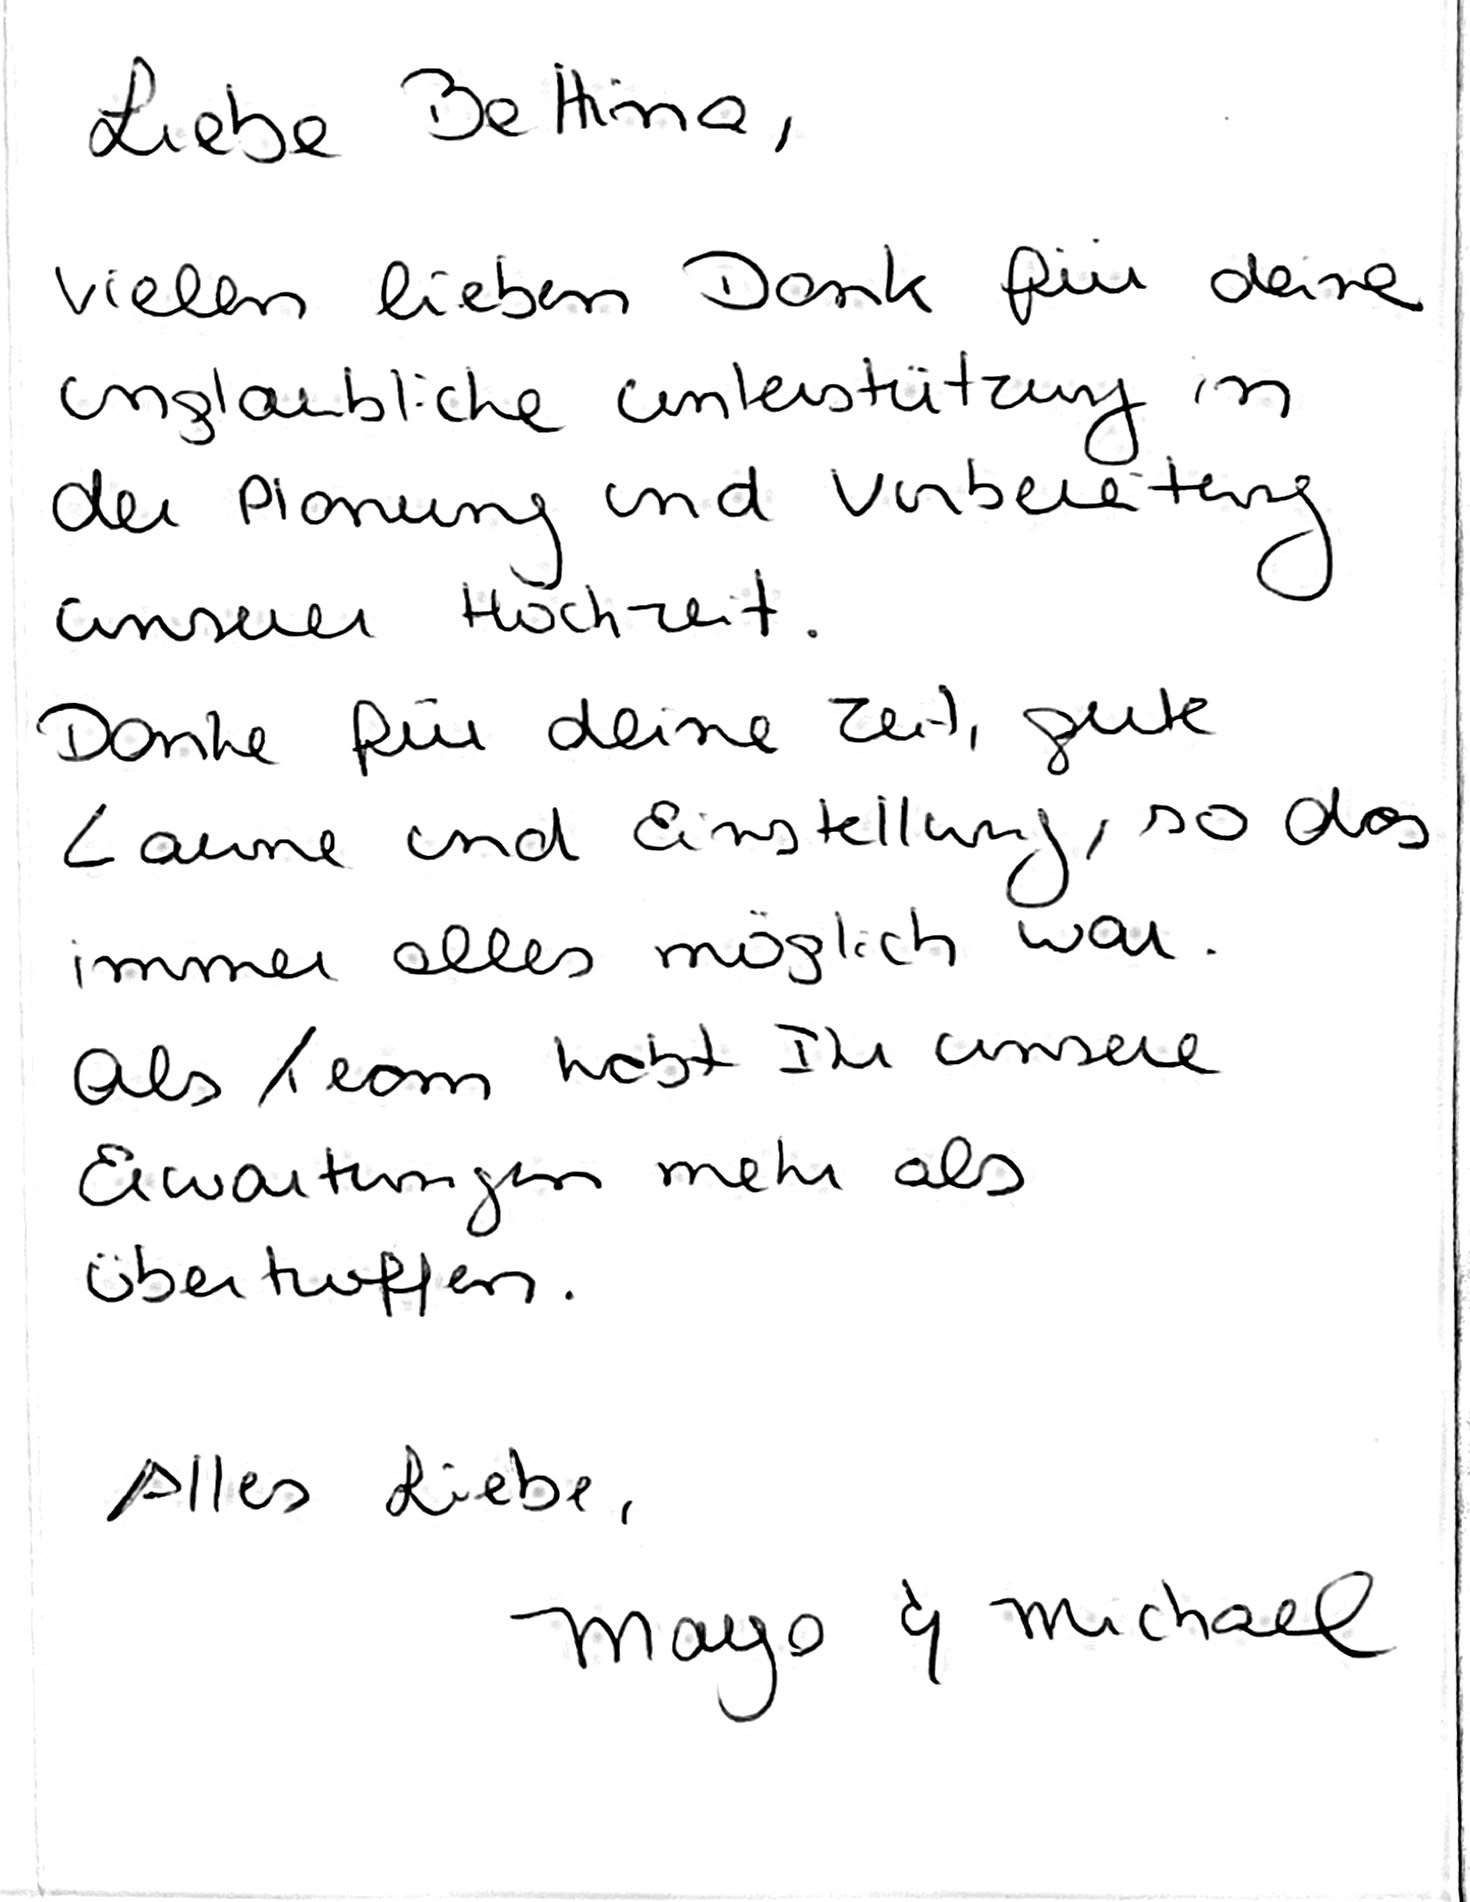 Liebe Bettina,
vielen lieben Dank für deine
unglaubliche unterstützung in
der Planung und Vorbereitung
unserer Hochzeit.
Danke für deine Zeit, gute
Laune und Einstellung, so das
immer alles möglich war.
Als Team habt Ihr unsere
Erwartungen mehr als
übertroffen.
Alles Liebe,
Mayo & Michael